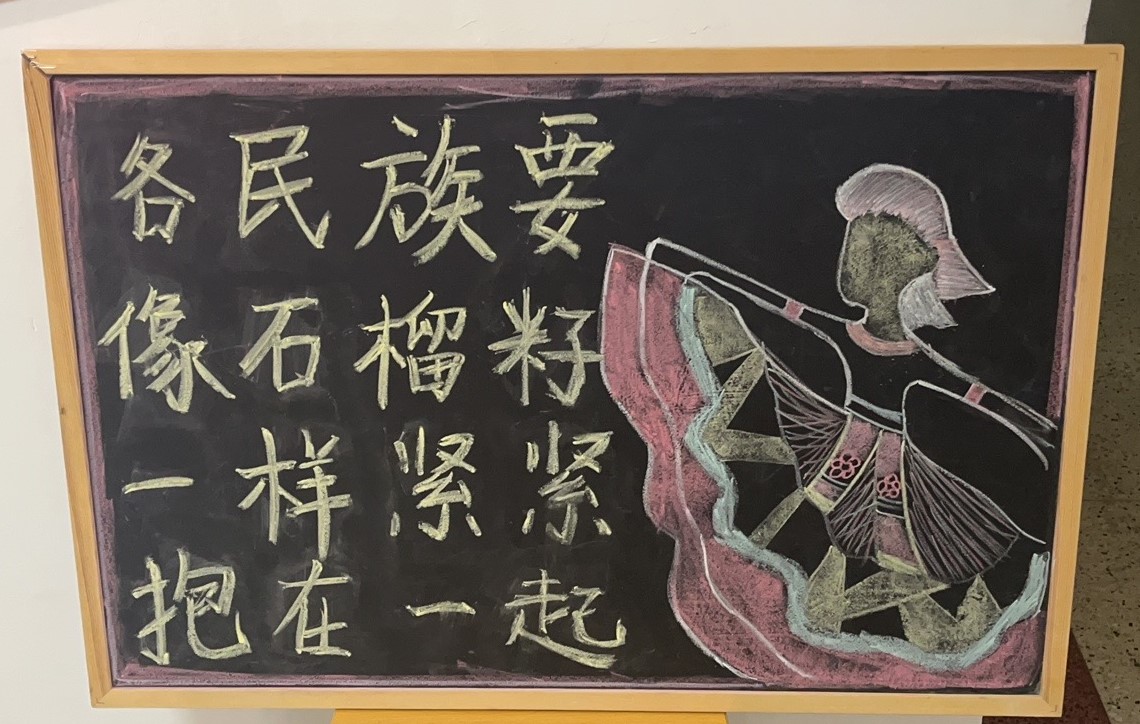 各民族要
像石榴籽
一样紧紧
抱在一起